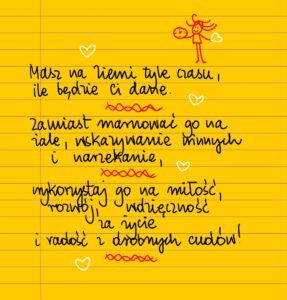 Masz na Ziemi tyle czasu,
ile będzie Ci dane.
zamiast marnować go na
żale, wskazywanie winnych
i narzekanie,
wykorzystaj go na miłość,
rozwój, wdzięczność
za życie
i radość z drobnych cudów!